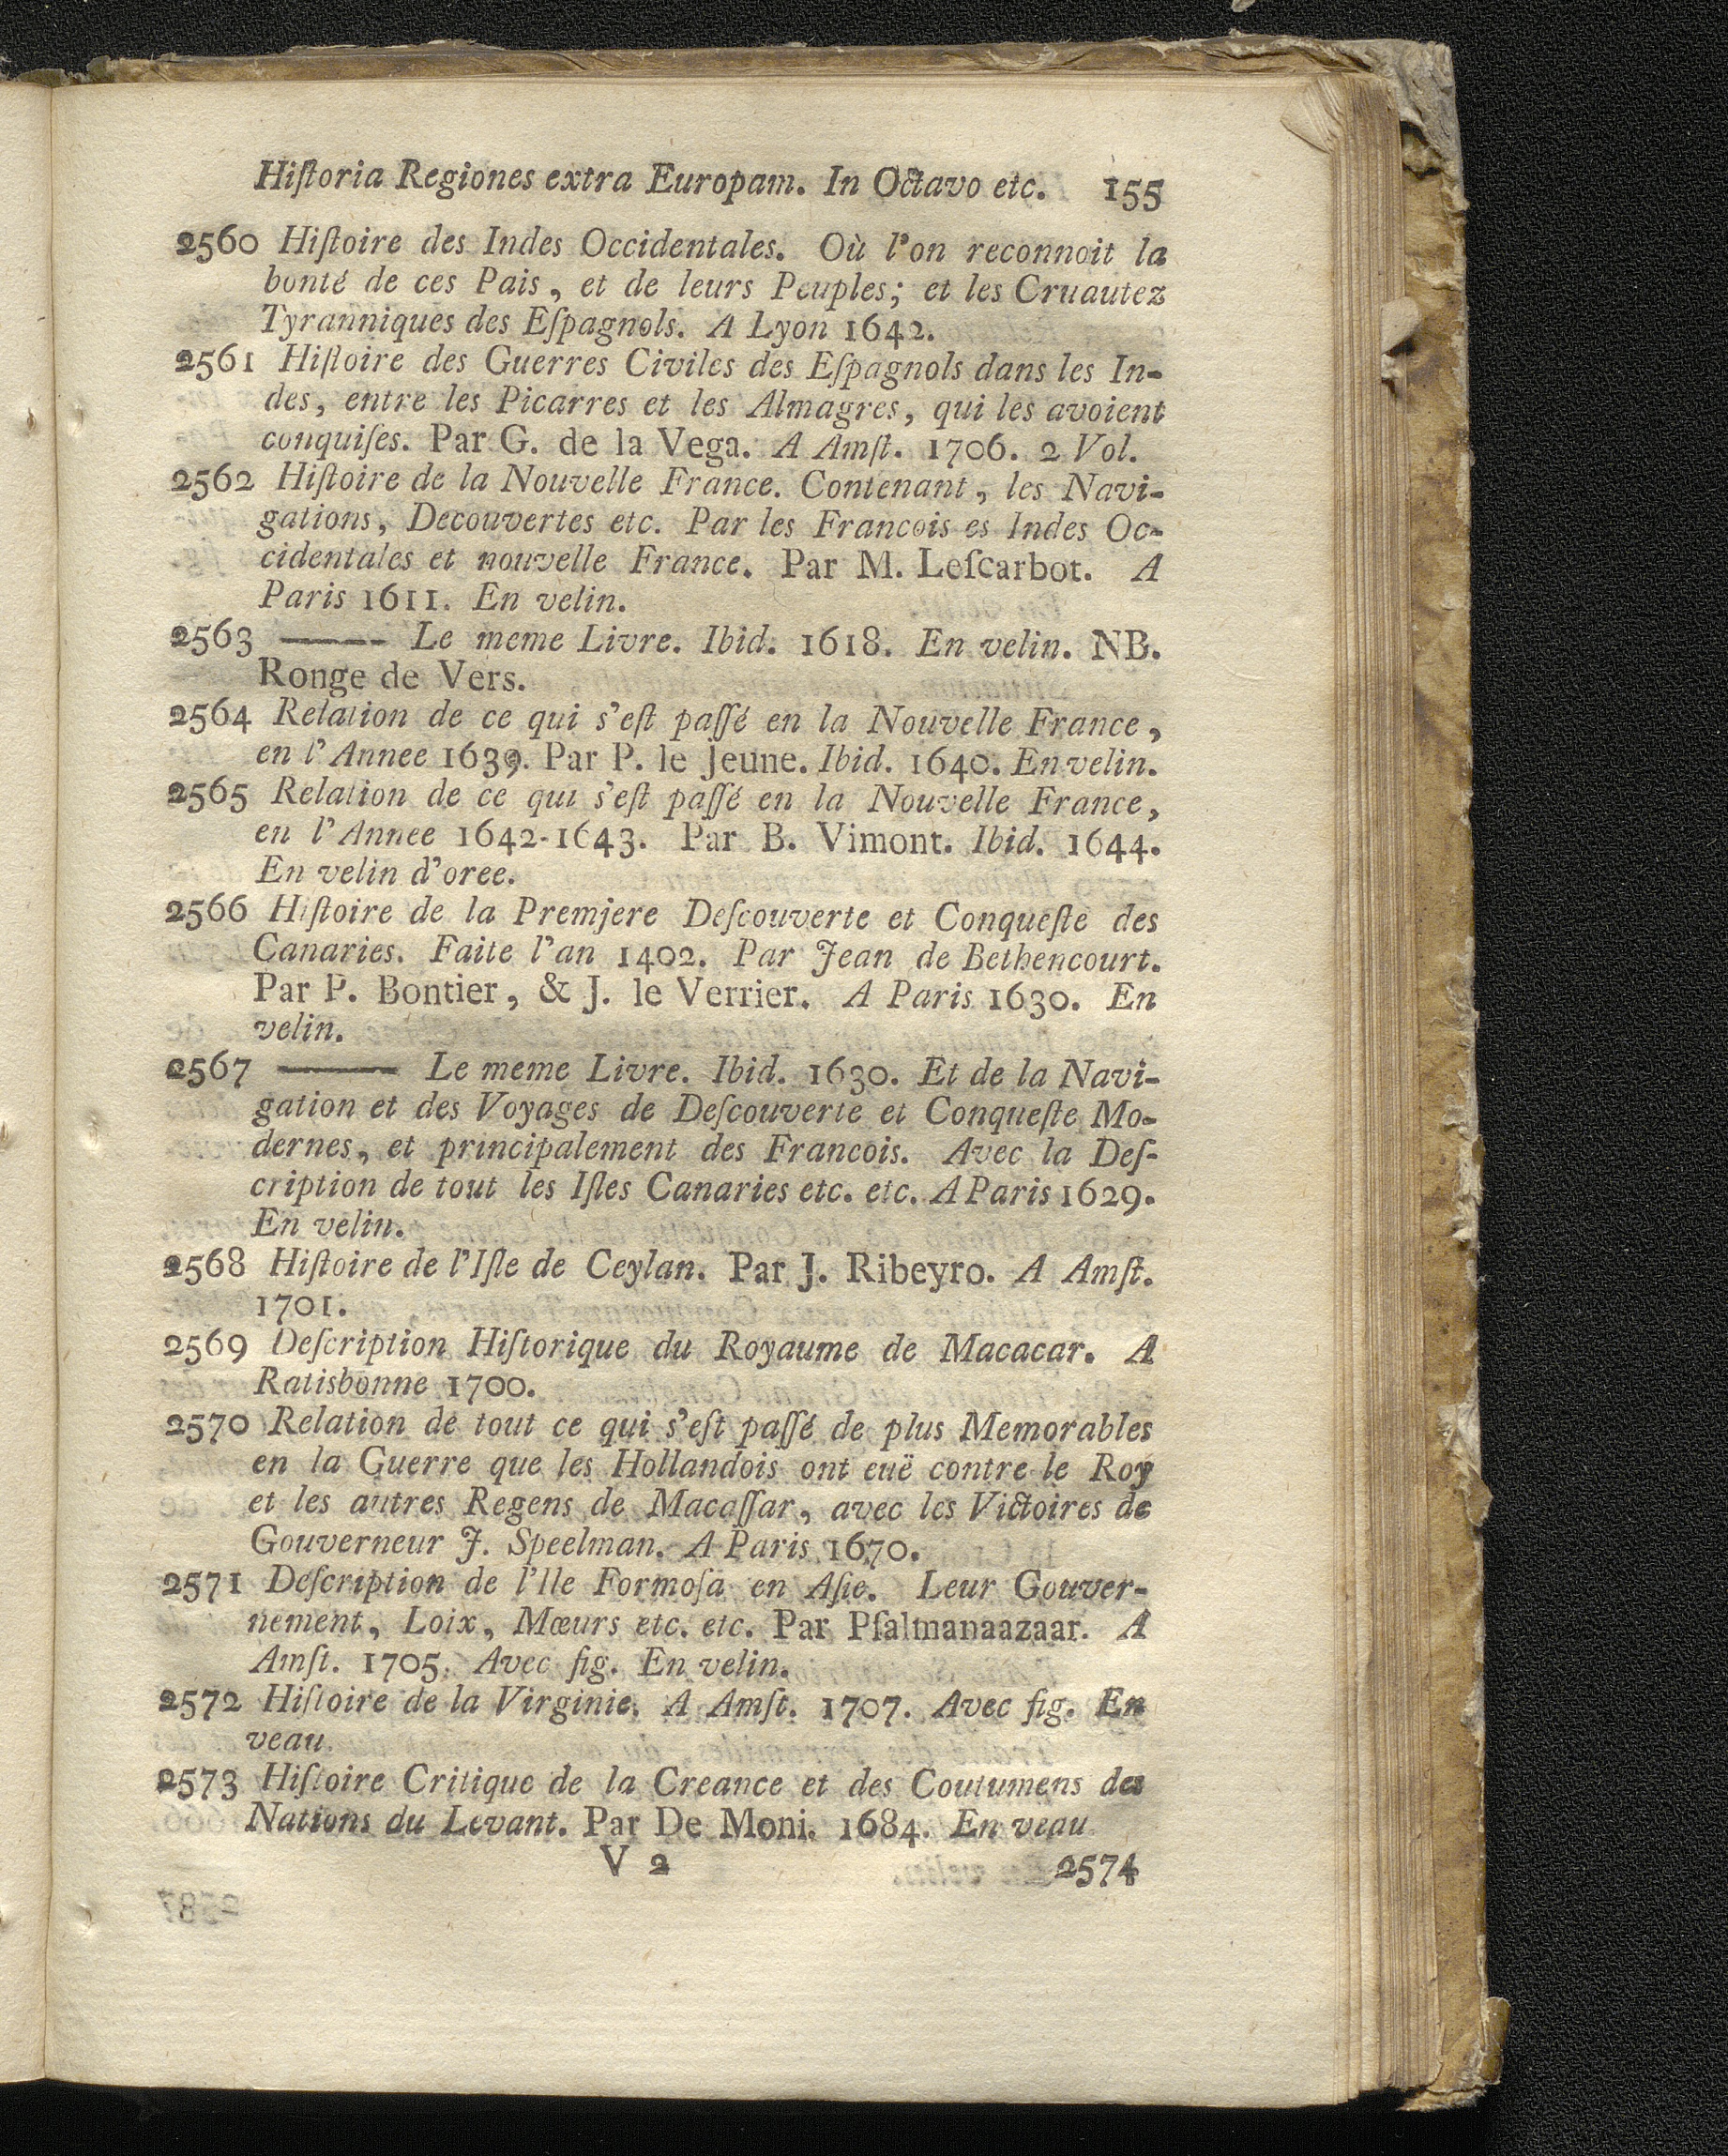 Hiſtoria Regiones extra Europam. In Octavo etc. 155
2560 Hiſtoire des Indes Occidentales. Où l'on reconnoit la
bonté de ces Pais, et de leurs Peuples; et les Cruautez
Tyranniques des Eſpagnols. A Lyon 1642.
2561 Hiſtoire des Guerres Civiles des Eſpagnols dans les In-
des, entre les Picarres et les Almagres, qui les avoient
conquiſes. Par G. de la Vega. A Amſt. 1706. 2 Vol.
2562 Hiſtoire de la Nouvelle France. Contenant, les Navi-
gations, Decouvertes etc. Par les Francois es Indes Oc-
cidentales et nouvelle France. Par M. Leſcarbot. A
Paris 1611. En velin.
2563 ——— Le meme Livre. Ibid. 1618. En velin. NB.
Ronge de Vers.
2564 Relation de ce qui s'eſt paſſé en la Nouvelle France,
en l'Annee 1639. Par P. le Jeune. Ibid. 1640. En velin.
2565 Relation de ce qui s'eſt paſſé en la Nouvelle France,
en l'Annee 1642-1643. Par B. Vimont. Ibid. 1644.
En velin d'oree.
2566 Hiſtoire de la Premjere Deſcouverte et Conqueſte des
Canaries. Faite l'an 1402. Par Jean de Bethencourt.
Par P. Bontier, & J. le Verrier. A Paris 1630. En
velin.
2567 ——— Le meme Livre. Ibid. 1630. Et de la Navi-
gation et des Voyages de Deſcouverte et Conqueſte Mo-
dernes, et principalement des Francois. Avec la Deſ-
cription de tout les Iſles Canaries etc. etc. A Paris 1629.
En velin.
2568 Hiſtoire de l'Iſle de Ceylan. Par J. Ribeyro. A Amſt.
1701.
2569 Deſcription Hiſtorique du Royaume de Macacar. A
Ratisbonne 1700.
2570 Relation de tout ce qui s'eſt paſſé de plus Memorables
en la Guerre que les Hollandois ont euë contre le Roy
et les autres Regens de Macaſſar, avec les Victoires de
Gouverneur J. Speelman. A Paris 1670.
2571 Deſcription de l'Ile Formoſa en Aſie. Leur Gouver-
nement, Loix, Mœurs etc. etc. Par Pſalmanaazaar. A
Amſt. 1705. Avec fig. En velin.
2572 Hiſtoire de la Virginie. A Amſt. 1707. Avec fig. En
veau.
2573 Hiſtoire Critique de la Creance et des Coutumens des
Nations du Levant. Par De Moni. 1684. En veau
V 2 2574